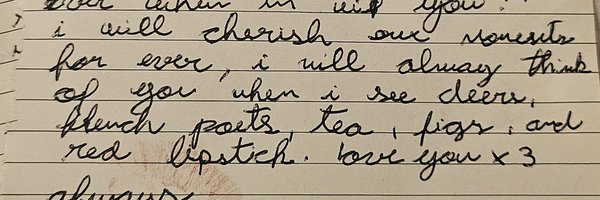 ever when in with you.
i will cherish our moments
for ever, i will alway think
of you when i see deers,
french poets, tea, figs, and
red lipstick. love you x 3
always